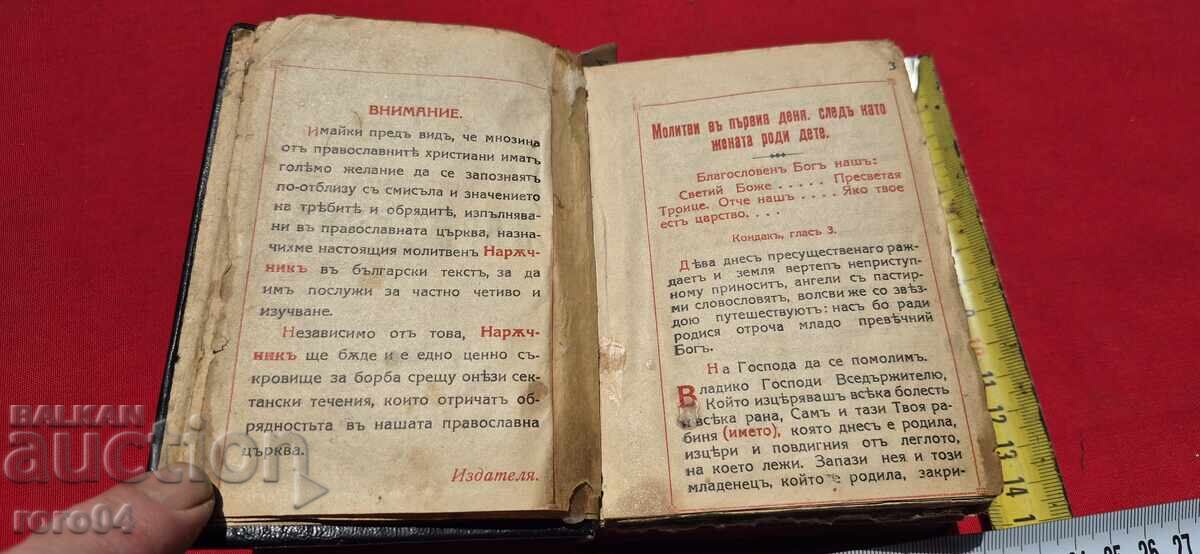 ВНИМАНИЕ.
Имайки предъ видъ, че мнозина
отъ православнитѣ християни иматъ
голѣмо желание да се запознаятъ
по-отблизу съ смисъла и значението
на трѣбитѣ и обрядитѣ, изпълнява-
ни въ православната църква, назна-
чихме настоящия молитвенъ Нарѫч-
никъ въ български текстъ, за да
имъ послужи за частно четиво и
изучване.
Независимо отъ това, Нарѫч-
никъ ще бѫде и е едно ценно съ-
кровище за борба срещу онѣзи сек-
тантски течения, които отричатъ об-
рядностьта въ нашата православна
църква.
Издателя.
3
Молитви въ първия день. следъ като
жената роди дете.
Благословенъ Богъ нашъ:
Светий Боже . . . . . Пресветая
Троице. Отче нашъ . . . . Яко твое
естъ царство. . . .
Кондакъ, гласъ 3.
Дѣва днесъ пресущественаго раж-
даетъ и земля вертепъ неприступ-
ному приноситъ, ангели съ пастир-
ми словословятъ, волсви же со звѣз-
дою путешествуютъ: насъ бо ради
родися отроча младо превѣчний
Богъ.
На Господа да се помолимъ.
Владико Господи Вседържителю,
Който изцѣрявашъ всѣка болесть
и всѣка рана, Самъ и тази Твоя ра-
биня (името), която днесъ е родила,
изцѣри и повдигния отъ леглото,
на което лежи. Запази нея и този
младенецъ, който е родила, закри-
BALKAN
auction
roro04
10
11
12
13
14
1
24
25
26
27